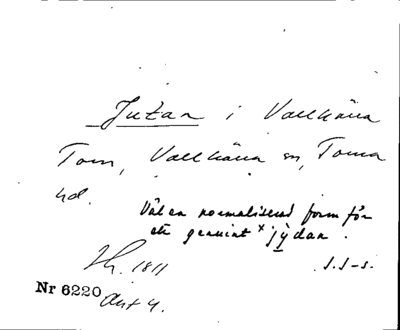 Jutan i Vallkärra
Torn, Vallkärra sn, Torna
hd.
Väl en normaliserad form för
ett genuint ˣjydan.
Hr. 1811
J.J-s.
Nr 6220
Akt 4.